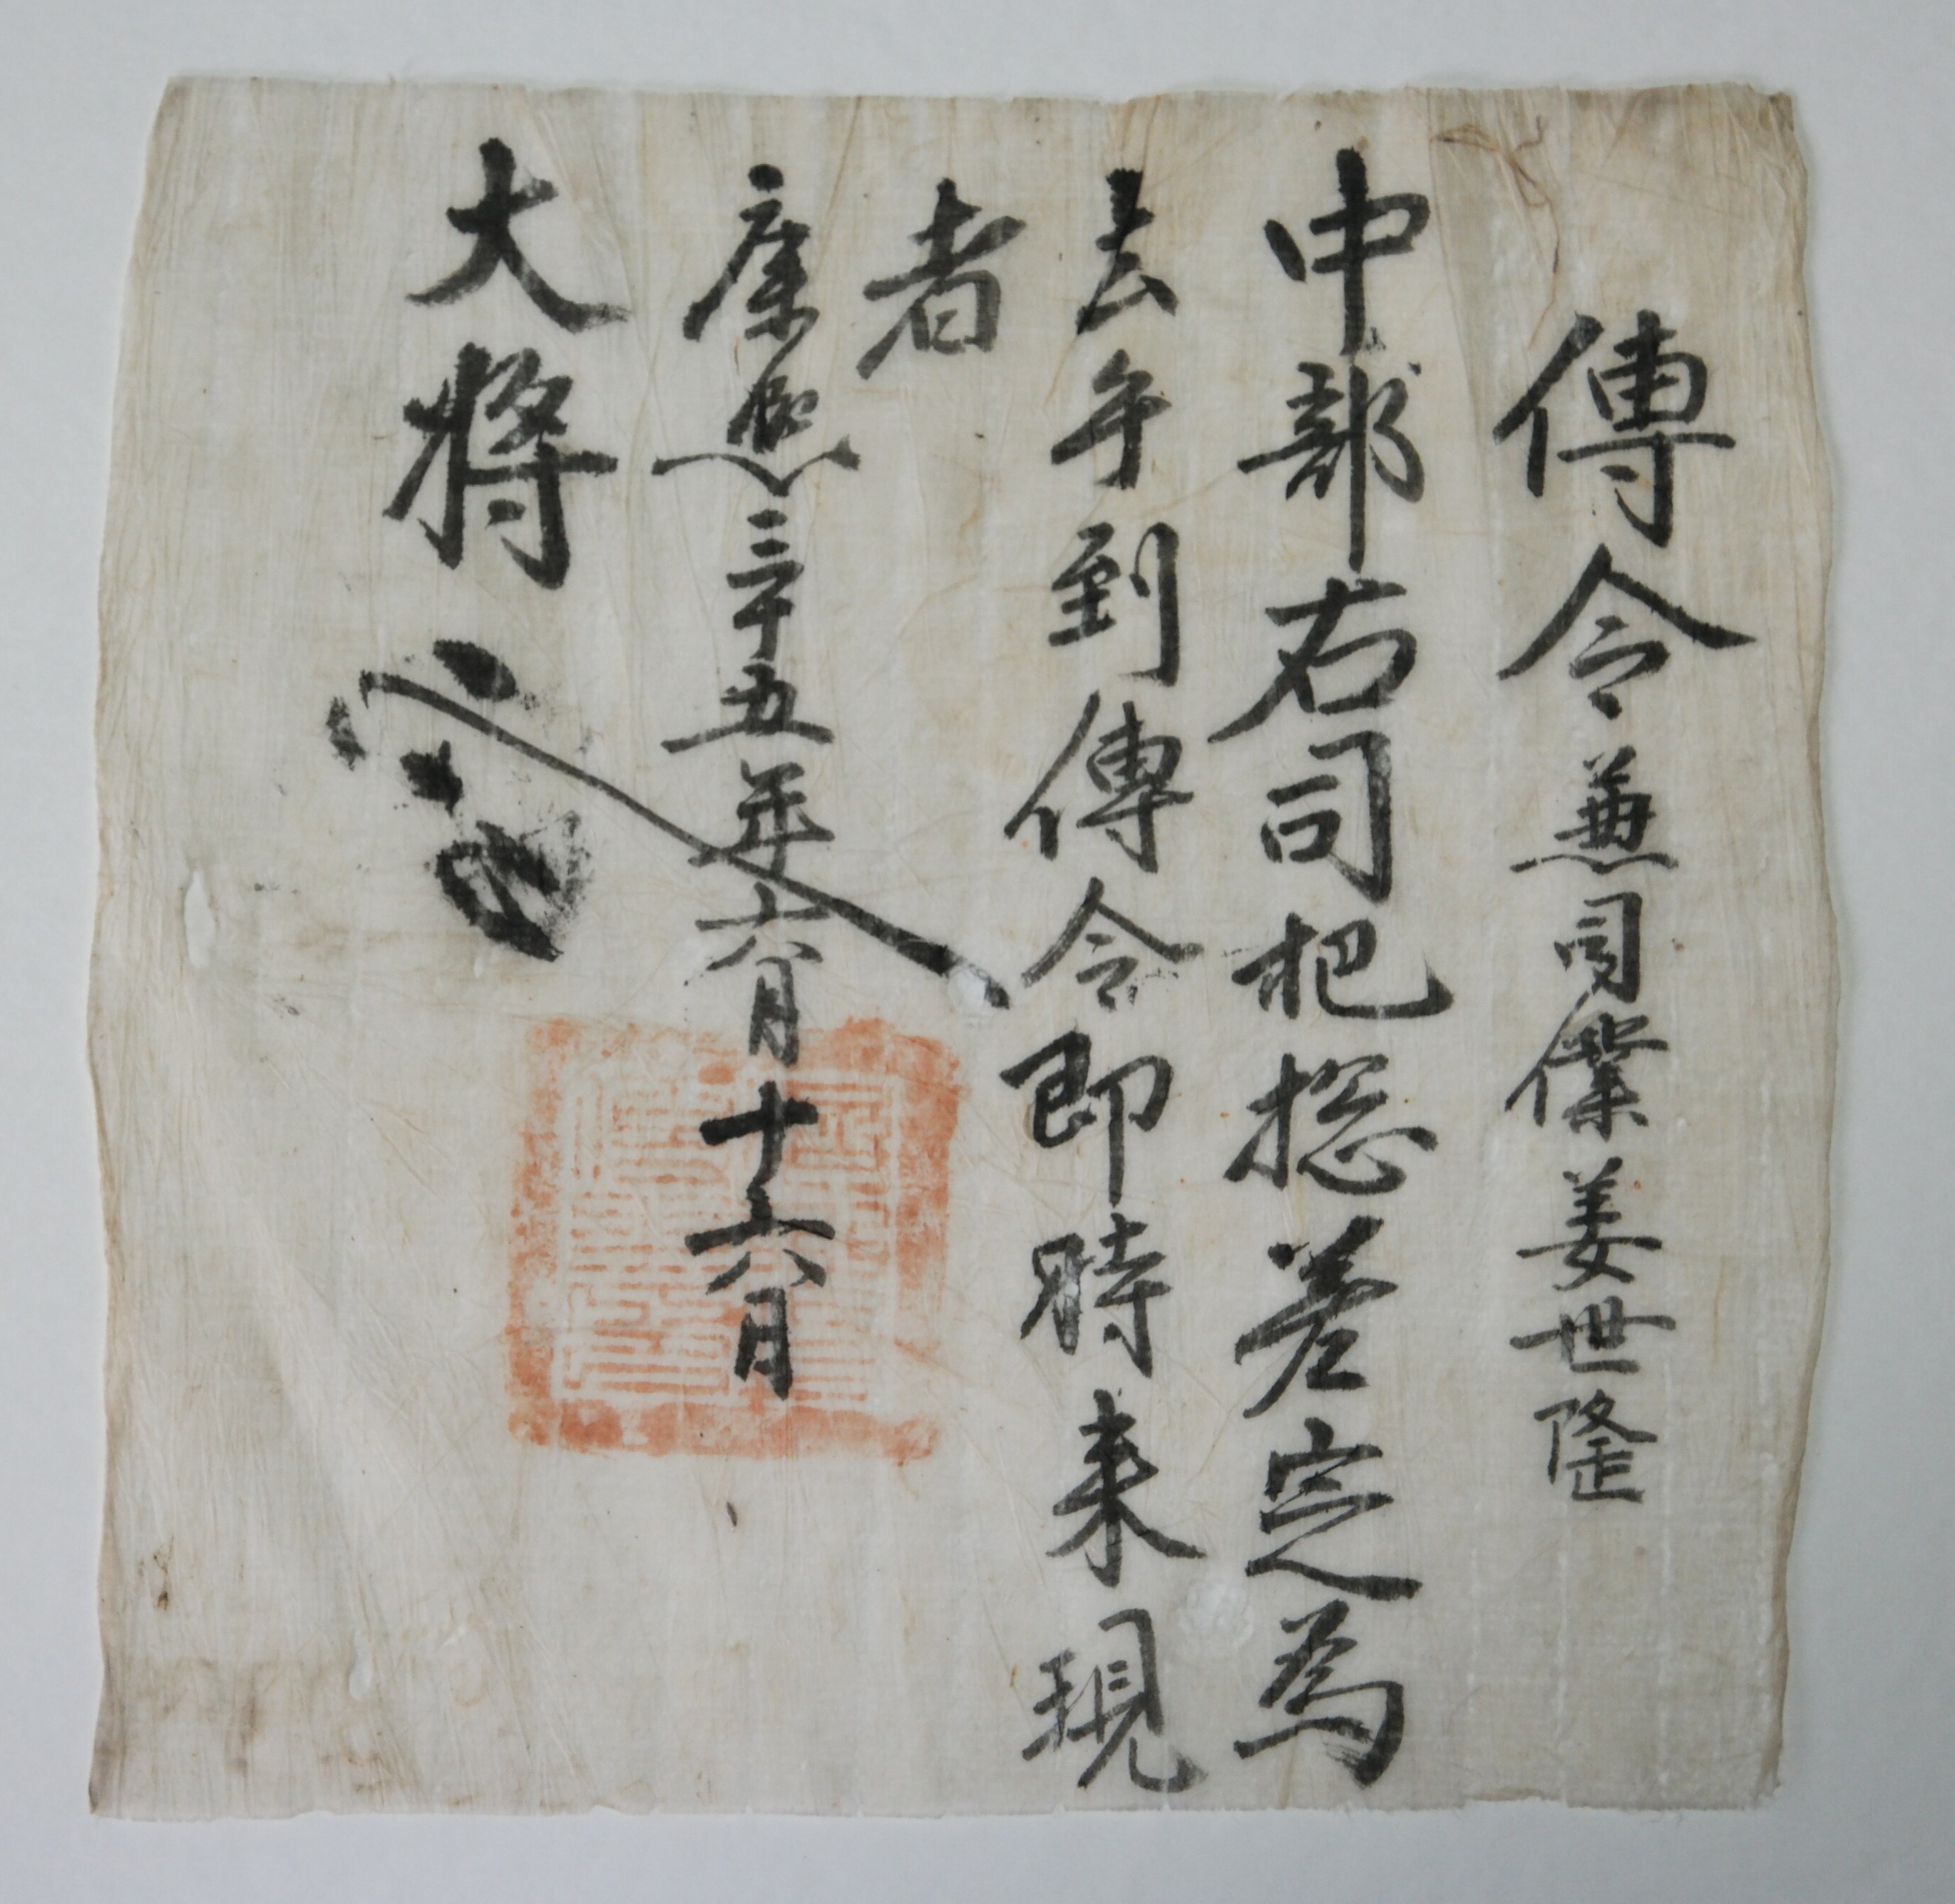 傳令 兼司僕姜世隆
中部右司把捴差定為
去乎到傳令即時来現
者
康熙三十五年六月十六日
大將